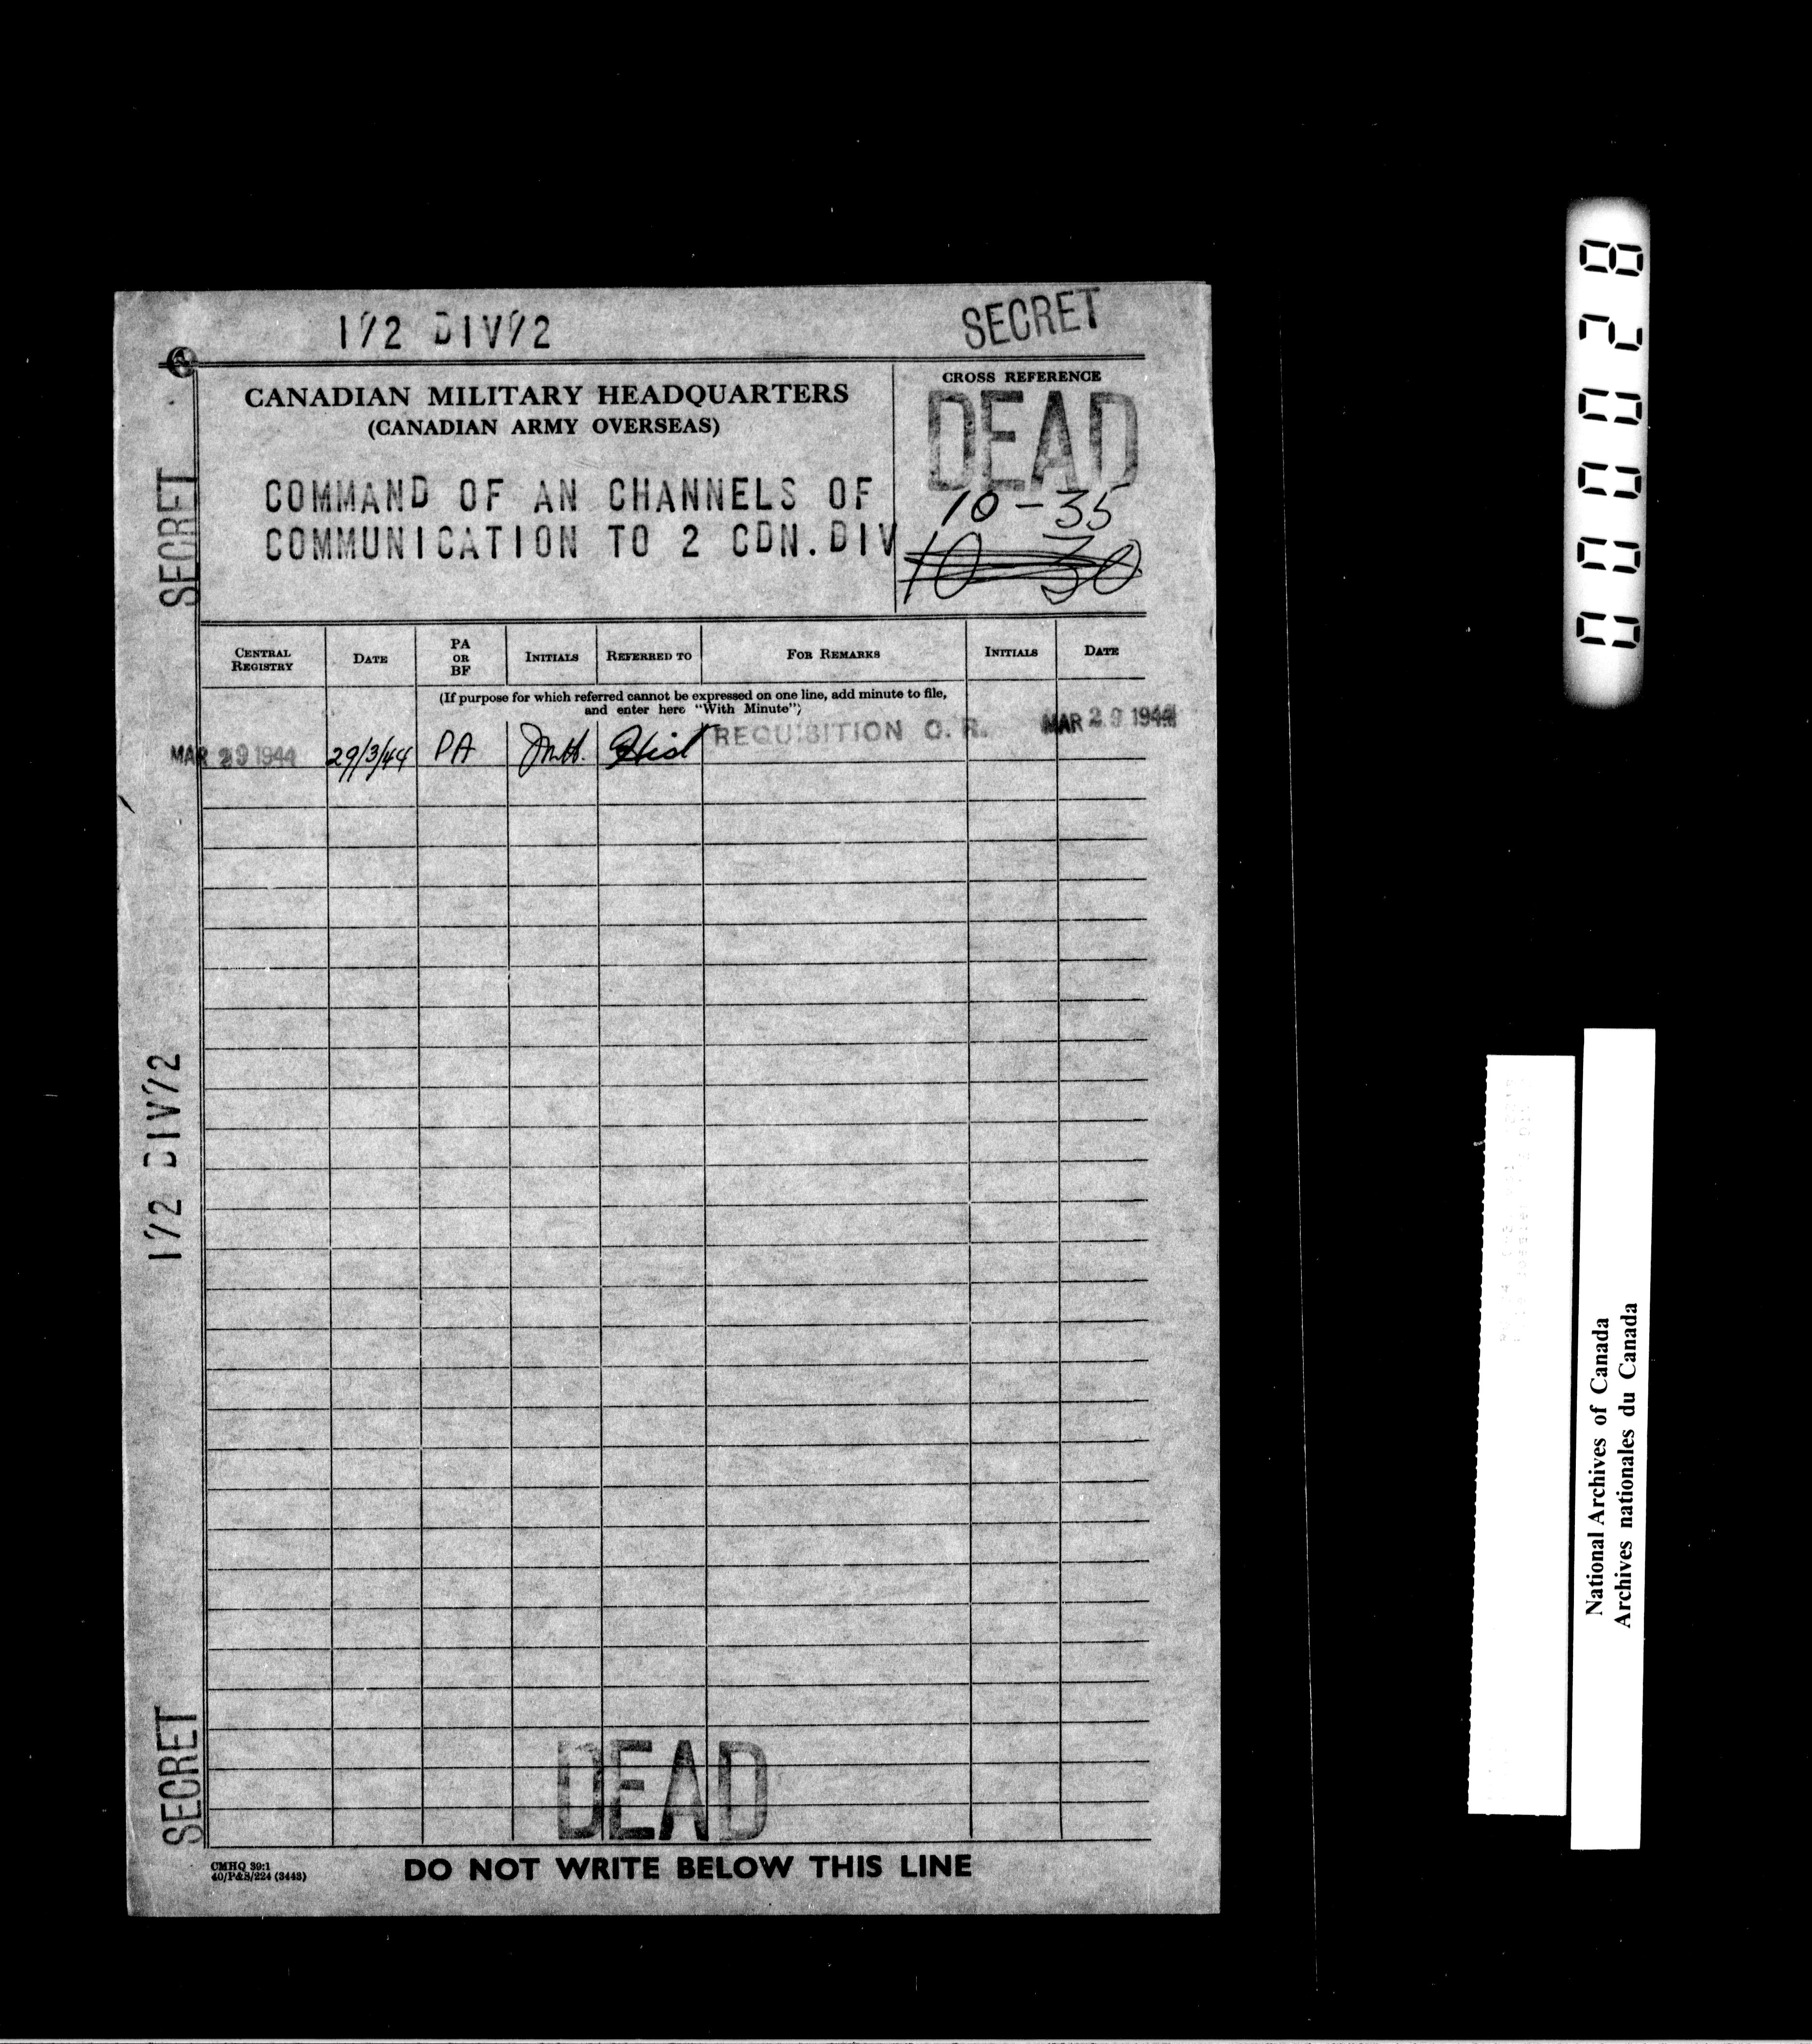 1/2 DIV/2
SECRET
CANADIAN MILITARY HEADQUARTERS
(CANADIAN ARMY OVERSEAS)
CROSS REFERENCE
DEAD
COMMAND OF AN CHANNELS OF
COMMUNICATION TO 2 CDN.DIV
10-35
10 30
SECRET
CENTRAL REGISTRY
DATE
PA OR BF
INITIALS
REFERRED TO
FOR REMARKS
INITIALS
DATE
(If purpose for which referred cannot be expressed on one line, add minute to file,
and enter here "With Minute")
MAR 29 1944
29/3/44
PA
Hist
REQUISITION C. R.
MAR 29 1944
1/2 DIV/2
SECRET
DEAD
CMHQ 39:1
40/P&S/224 (3443)
DO NOT WRITE BELOW THIS LINE
000028
National Archives of Canada
Archives nationales du Canada